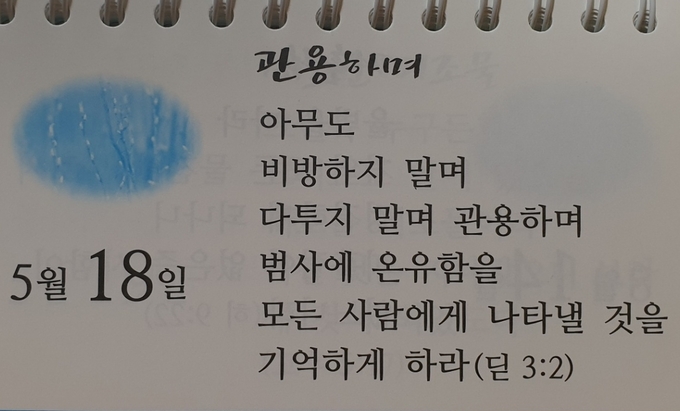 관용하며
아무도
비방하지 말며
다투지 말며 관용하며
범사에 온유함을
모든 사람에게 나타낼 것을
기억하게 하라(딛 3:2)
5월 18일